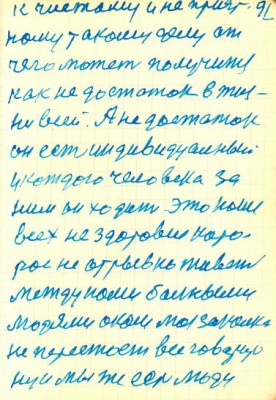 к чистому и не прият- 91
ному такому делу от
чего может получится
как не достаток в жиз-
ни всей. А не достаток
он ест индивидуалный
у каждого человека за
ним он ходит. Это наше
всех не здоровие кото-
рое не отрывно живет
между нами болными
людями о ком моя заповка
не перестает все говорю
ну и мы же если люди